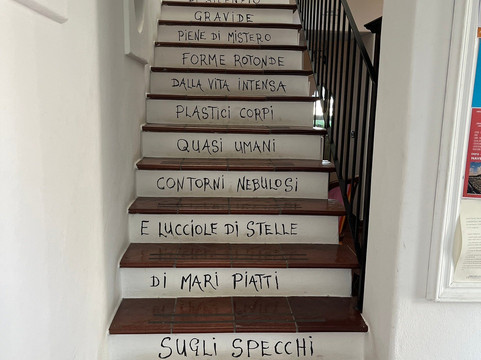 GRAVIDE
PIENE DI MISTERO
FORME ROTONDE
DALLA VITA INTENSA
PLASTICI CORPI
QUASI UMANI
CONTORNI NEBULOSI
E LUCCIOLE DI STELLE
DI MARI PIATTI
SUGLI SPECCHI